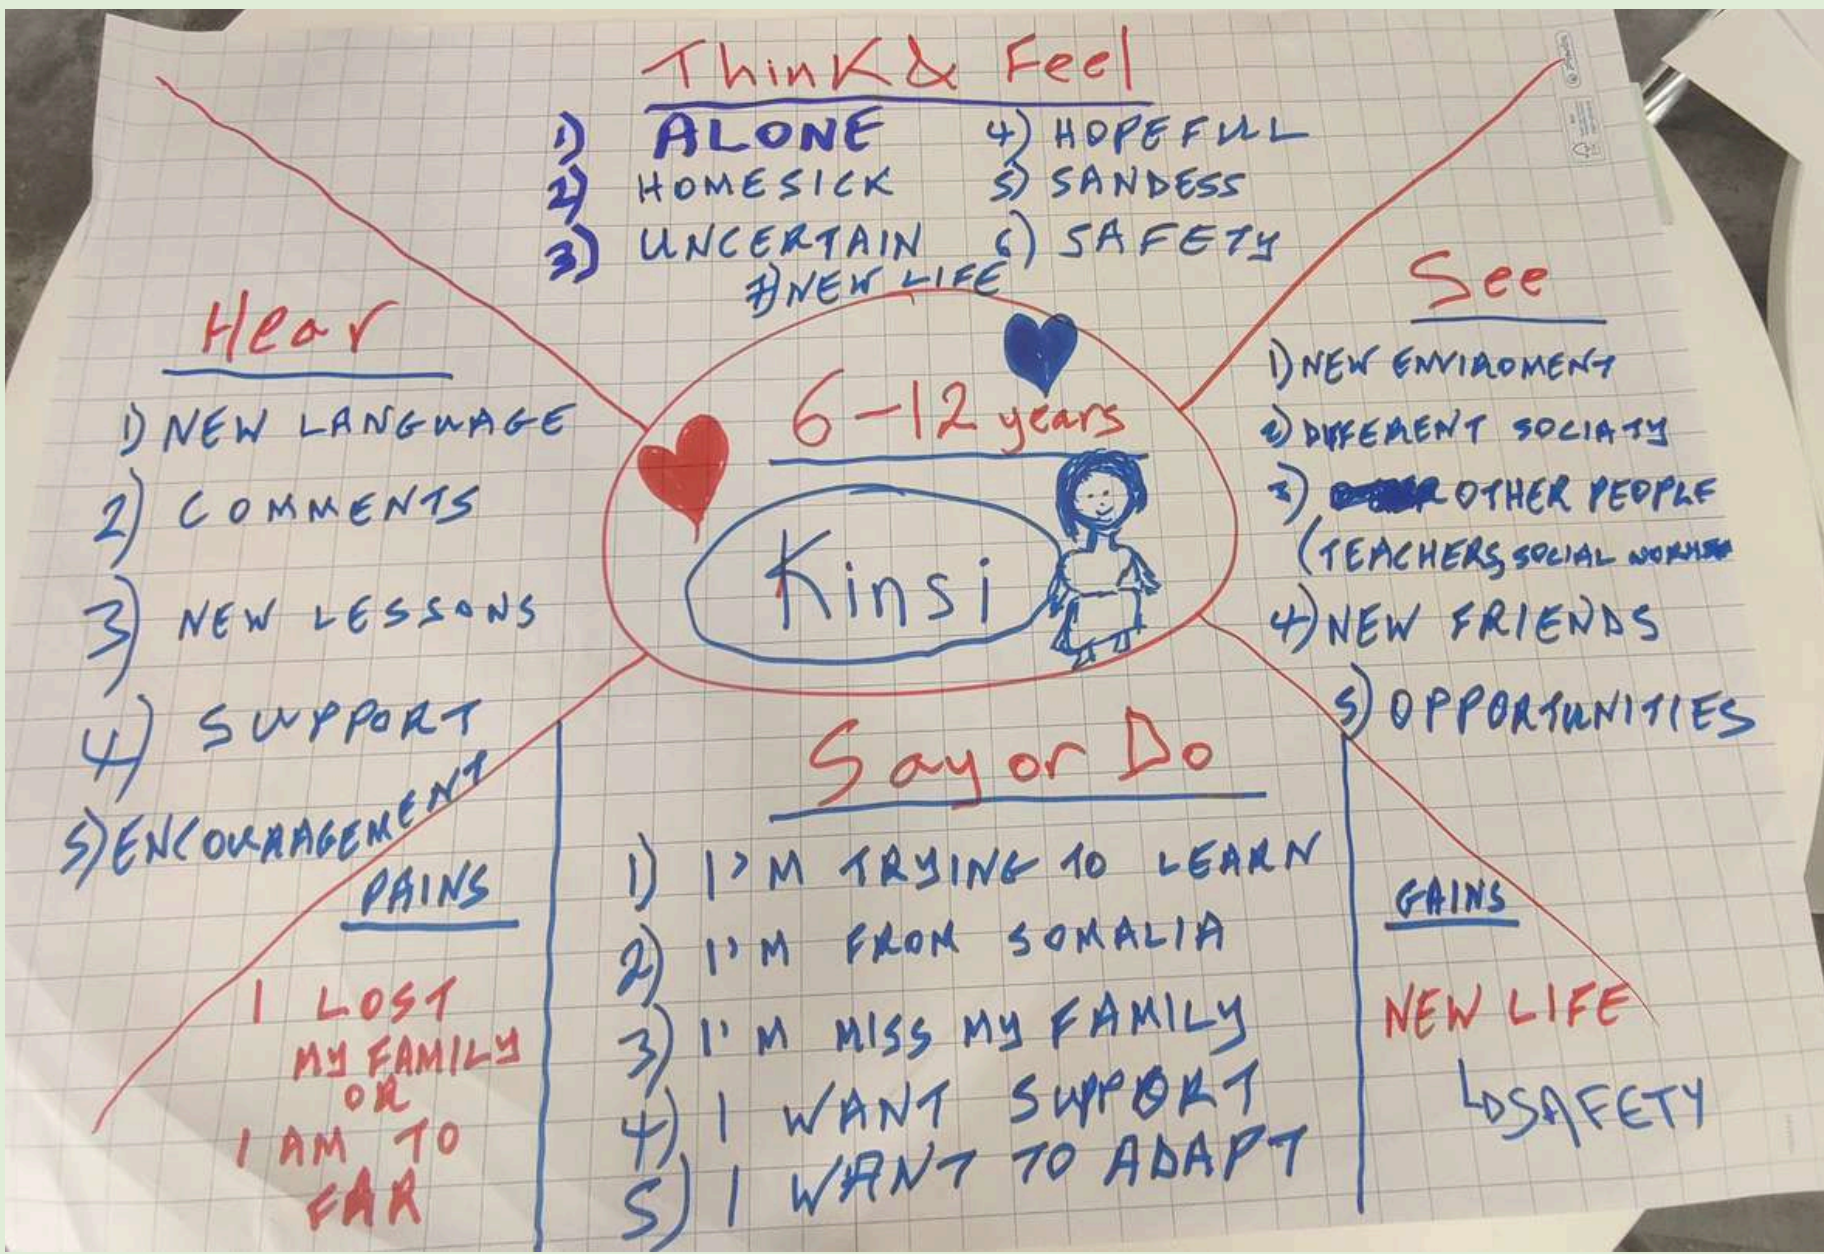 Think & Feel
1) ALONE
2) HOMESICK
3) UNCERTAIN
4) HOPEFULL
5) SANDESS
6) SAFETY
7) NEW LIFE
Hear
1) NEW LANGUAGE
2) COMMENTS
3) NEW LESSONS
4) SUPPORT
5) ENCOURAAGEMENT
6-12 years
Kinsi
See
1) NEW ENVIROMENT
2) DIFFERENT SOCIATY
3) OTHER PEOPLE
(TEACHERS, SOCIAL
4) NEW FRIENDS
5) OPPORTUNITIES
PAINS
I LOST
MY FAMILY
OR
I AM TO
FAR
Say or Do
1) I'M TRYING TO LEARN
2) I'M FROM SOMALIA
3) I'M MISS MY FAMILY
4) I WANT SUPPORT
5) I WANT TO ADAPT
GAINS
NEW LIFE
↳SAFETY